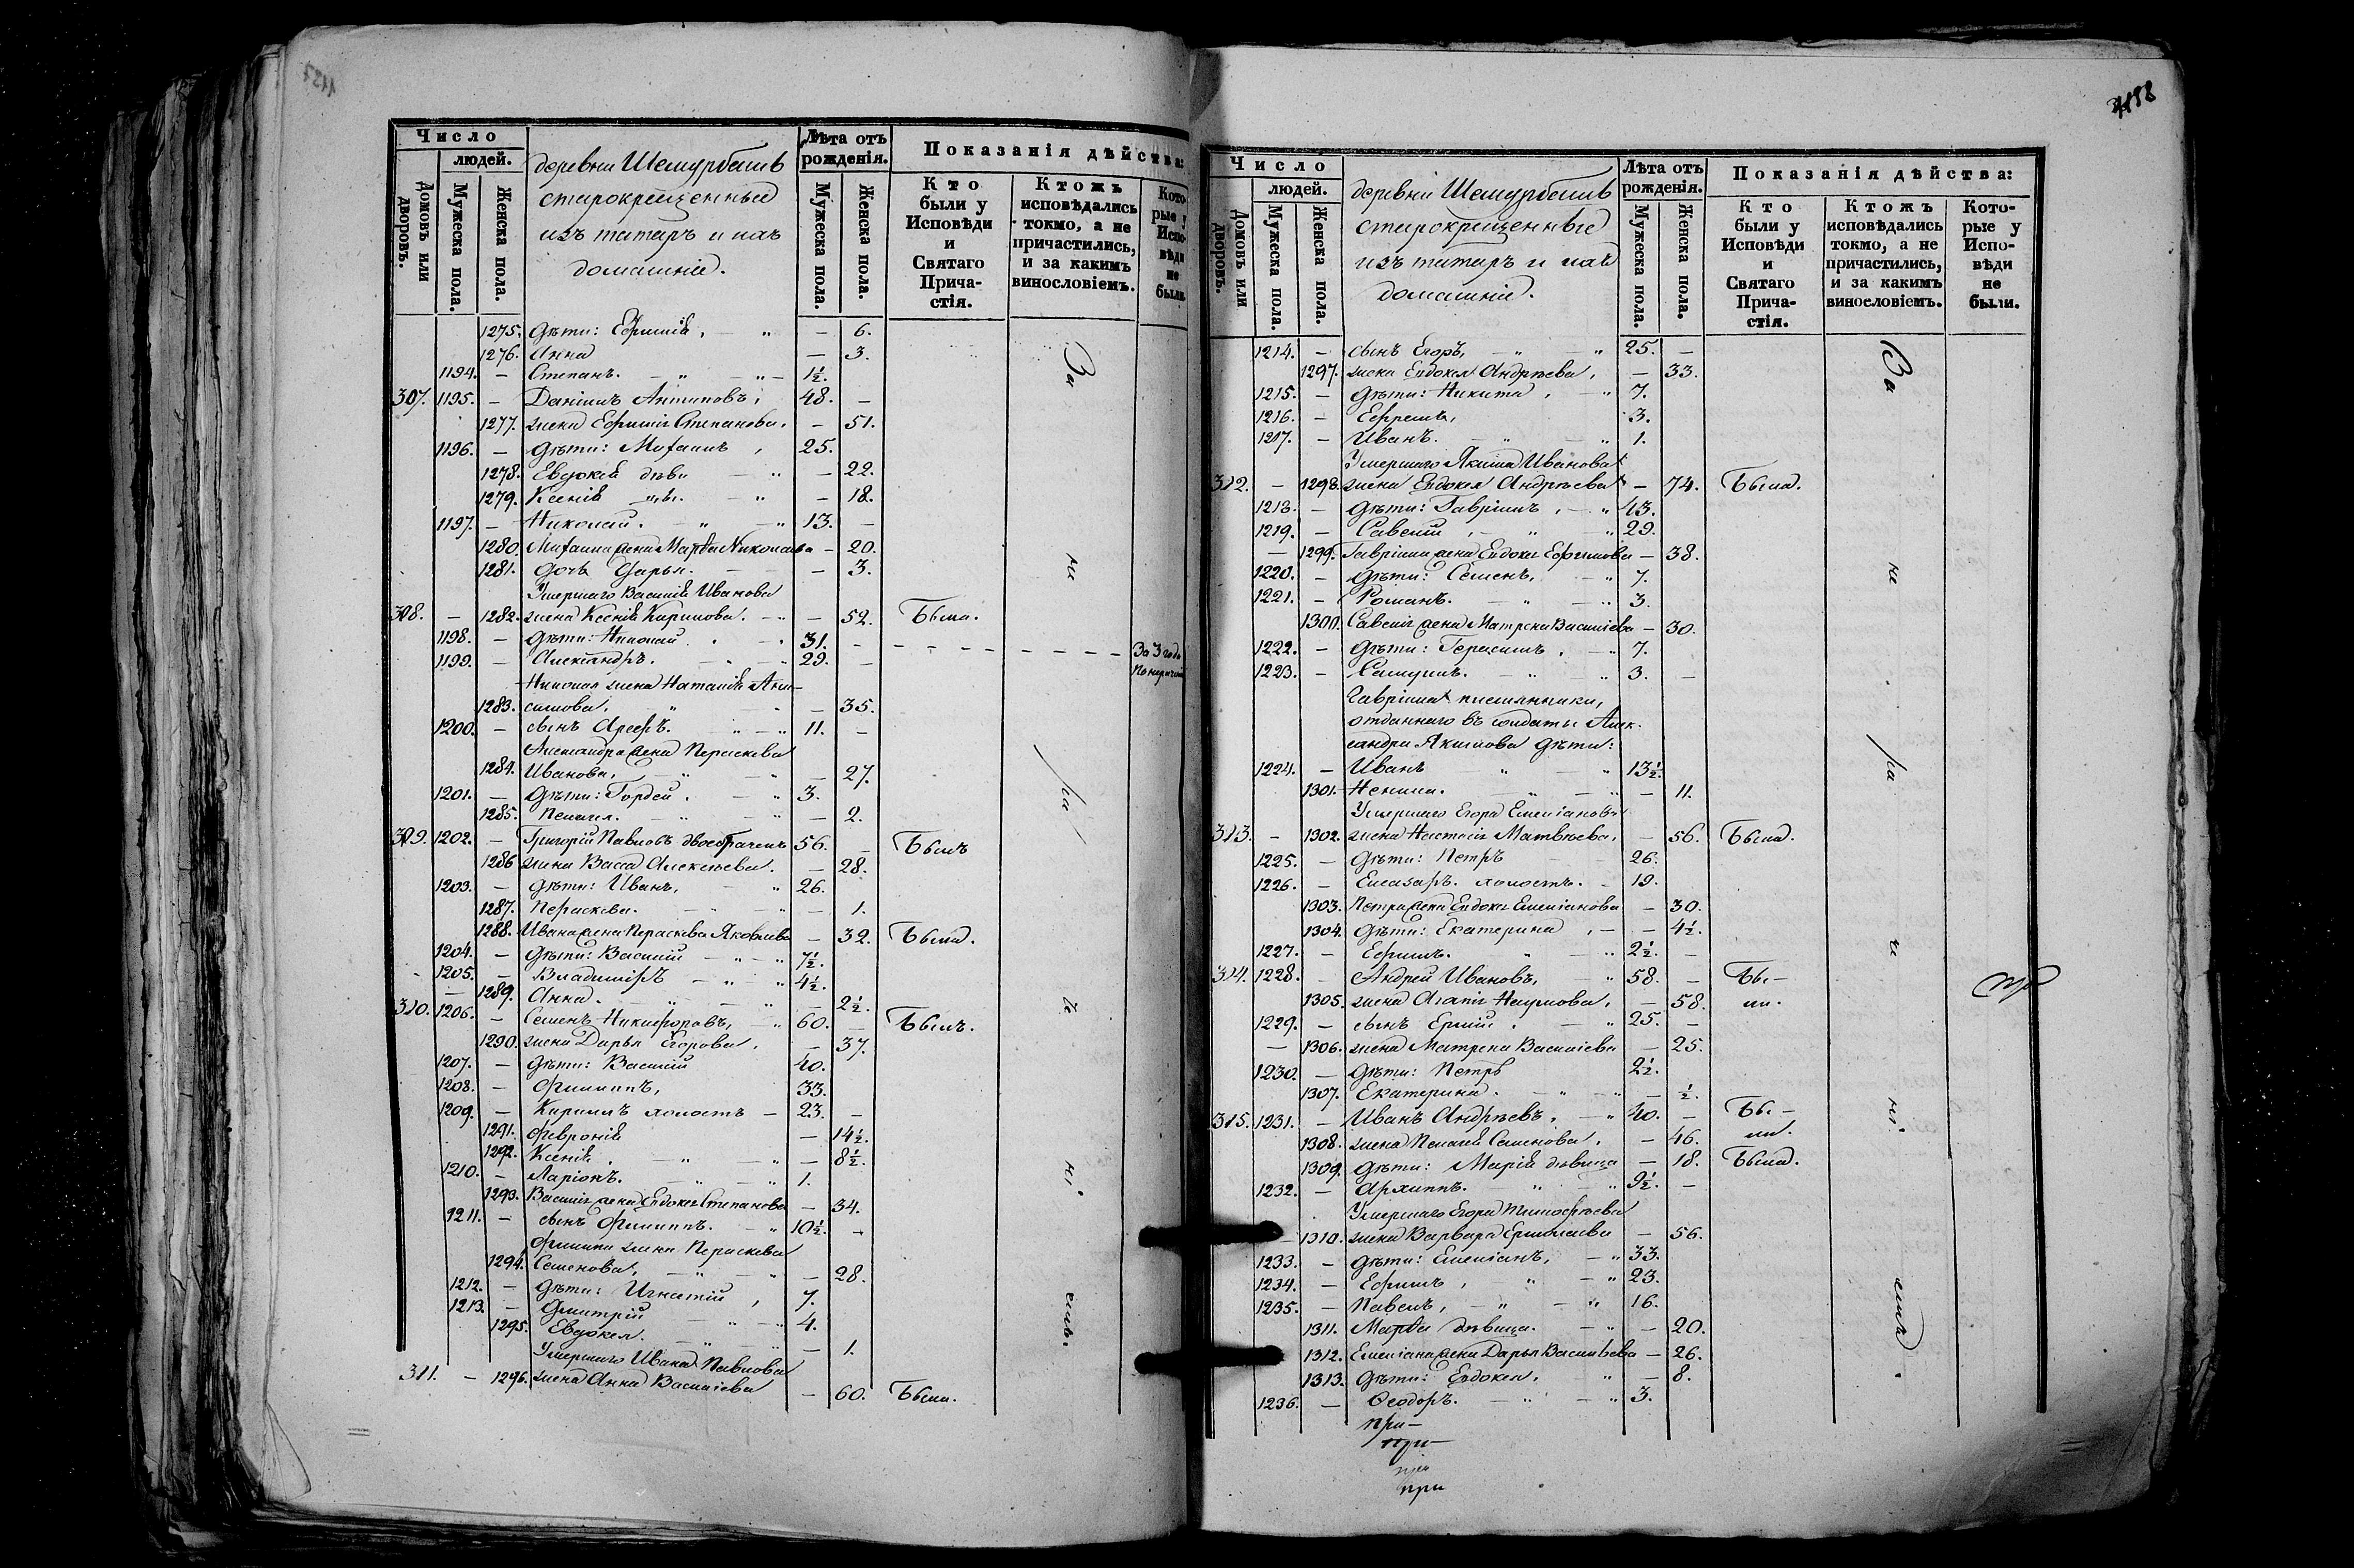 1157
Число
людей.
Домовъ или дворовъ.
Мужеска пола.
Женска пола.
деревни Шемурбашъ
старокрещенныя
изъ татаръ и ихъ
домашніе.
Лѣта отъ рожденія.
Мужеска пола.
Женска пола.
Показанія дѣйства:
Кто были у Исповѣди и Святаго Прича-стія.
Ктожъ исповѣдались токмо, а не причастились, и за какимъ винословіемъ.
Кото-рые у Испо-вѣди не были.
1275. Дѣти: Ефимія, — 6.
1276. Анна — 3.
1194. — Степанъ. 1½.
307. 1195. — Даніилъ Антиповъ, 48. —
1277. жена Ефимія Степанова. — 51.
1196. — Дѣти: Михаилъ, 25.
1278. Евдокія дѣви — 22.
1279. Ксенія — 18.
1197. — Николай. 13. —
1280. Михаила жена Марѳа Николаева — 20.
1281. дочь Дарья. — 3.
Умершаго Василія Иванова
308. — 1282. жена Ксенія Кирилова. — 52. Была.
1198. — Дѣти: Николай. 31. —
1199. — Александръ. 29. — За 3 года
Николая жена Наталія Ани-
1283. симова, — 35.
1200. — сынъ Арефъ. 11. —
Александра жена Пераскева
1284. Иванова, — 27.
1201. — Дѣти: Гордей. 3.
1285. Пелагея. — 2.
309. 1202. — Григорій Павловъ двоебраченъ 56. — Былъ
1286 жена Васса Алексѣева. — 28.
1203. — Дѣти: Иванъ, 26.
1287. Пераскева. — 1.
1288. Ивана жена Пераскева Яковлева — 32. Была.
1204. — Дѣти: Василій 7½.
1205. — Владиміръ 4½.
— 1289. Анна. — 2½.
310. 1206. — Семенъ Никифоровъ, 60. — Былъ.
1290. жена Дарья Егорова, — 37.
1207. — Дѣти: Василій 40.
1208. — Филиппъ, 33.
1209. — Кириллъ холостъ — 23. —
1291. Февронія — 14½.
1292. Ксенія. — 8½.
1210. — Ларіонъ. 1.
1293. Василія жена Евдокія Степанова — 34.
1211. — сынъ Филиппъ. 10½. —
Филиппа жена Пераскева
1294. Семенова, — 28.
1212. — Дѣти: Игнатій, 7.
1213. — Дмитрій 4.
1295. Евдокея. — 1.
Умершаго Ивана Павлова
311. — 1296. жена Анна Василіева — 60. Была.
За не ра че ні емъ.
1158
Число
людей.
Домовъ или дворовъ.
Мужеска пола.
Женска пола.
деревни Шемурбашъ
старокрещенные
изъ татаръ и ихъ
домашніе.
Лѣта отъ рожденія.
Мужеска пола.
Женска пола.
Показанія дѣйства:
Кто были у Исповѣди и Святаго Прича-стія.
Ктожъ исповѣдались токмо, а не причастились, и за какимъ винословіемъ.
Кото-рые у Испо-вѣди не были.
1214. — сынъ Егоръ, 25. —
1297. жена Евдокея Андрѣева, — 33.
1215. — Дѣти: Никита, 7.
1216. — Ефремъ, 3.
1217. — Иванъ. 1.
Умершаго Якима Иванова
312. — 1298. жена Евдокея Андрѣева — 74. Была.
1218. — Дѣти: Гавріилъ, 43.
1219. — Савелій, 29.
— 1299. Гавріила жена Евдокея Ефимова — 38.
1220. — Дѣти: Семенъ, 7.
1221. — Романъ. 3.
1300. Савелія жена Матрена Василіева — 30.
1222. — Дѣти: Герасимъ, 7.
1223. — Самуилъ. 3. —
Гавріила племянники,
отданнаго въ солдаты Алек-
сандра Якимова дѣти:
1224. — Иванъ 13½.
1301. Ненила. — 11.
Умершаго Егора Емеліанова
313. — 1302. жена Настасія Матвѣева. — 56. Была.
1225. — Дѣти: Петръ 26.
1226. — Елеазаръ. холостъ. 19.
1303. Петра жена Евдокея Емеліанова — 30.
1304. Дѣти: Екатерина, — 4½.
1227. — Ефимъ. 2½. —
314. 1228. — Андрей Ивановъ, 58. — Бы-
1305. жена Агапія Наумова, — 58. ли.
1229. — сынъ Ермій. 25. —
— 1306. жена Матрена Василіева — 25.
1230. — Дѣти: Петръ 2½.
1307. Екатерина. — ½.
315. 1231. — Иванъ Андрѣевъ. 40. — Бы-
1308. жена Пелагея Семенова, — 46. ли.
1309. Дѣти: Марія дѣвица — 18. Была.
1232. — Архиппъ. 9½. —
Умершаго Егора Тимофѣева
— 1310. жена Варвара Ермолаева — 56.
1233. — Дѣти: Емеліанъ, 33.
1234. — Ефимъ, 23.
1235. — Павелъ, 16.
1311. Марѳа дѣвица. — 20.
1312. Емеліана жена Дарья Васильева — 26.
1313. Дѣти: Евдокея, — 8.
1236. — Ѳеодоръ. 3.
За не ра че ні емъ.
при-
при-
при
при